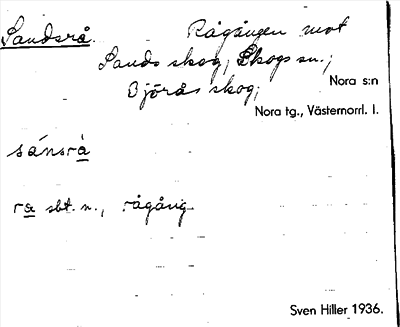 Sandsrå. Rågången mot
Sands skog, Skogs sn.;
Björås skog;
Nora s:n
Nora tg., Västernorrl. l.
sánsrå̀
rå sbt. n., rågång
Sven Hiller 1936.